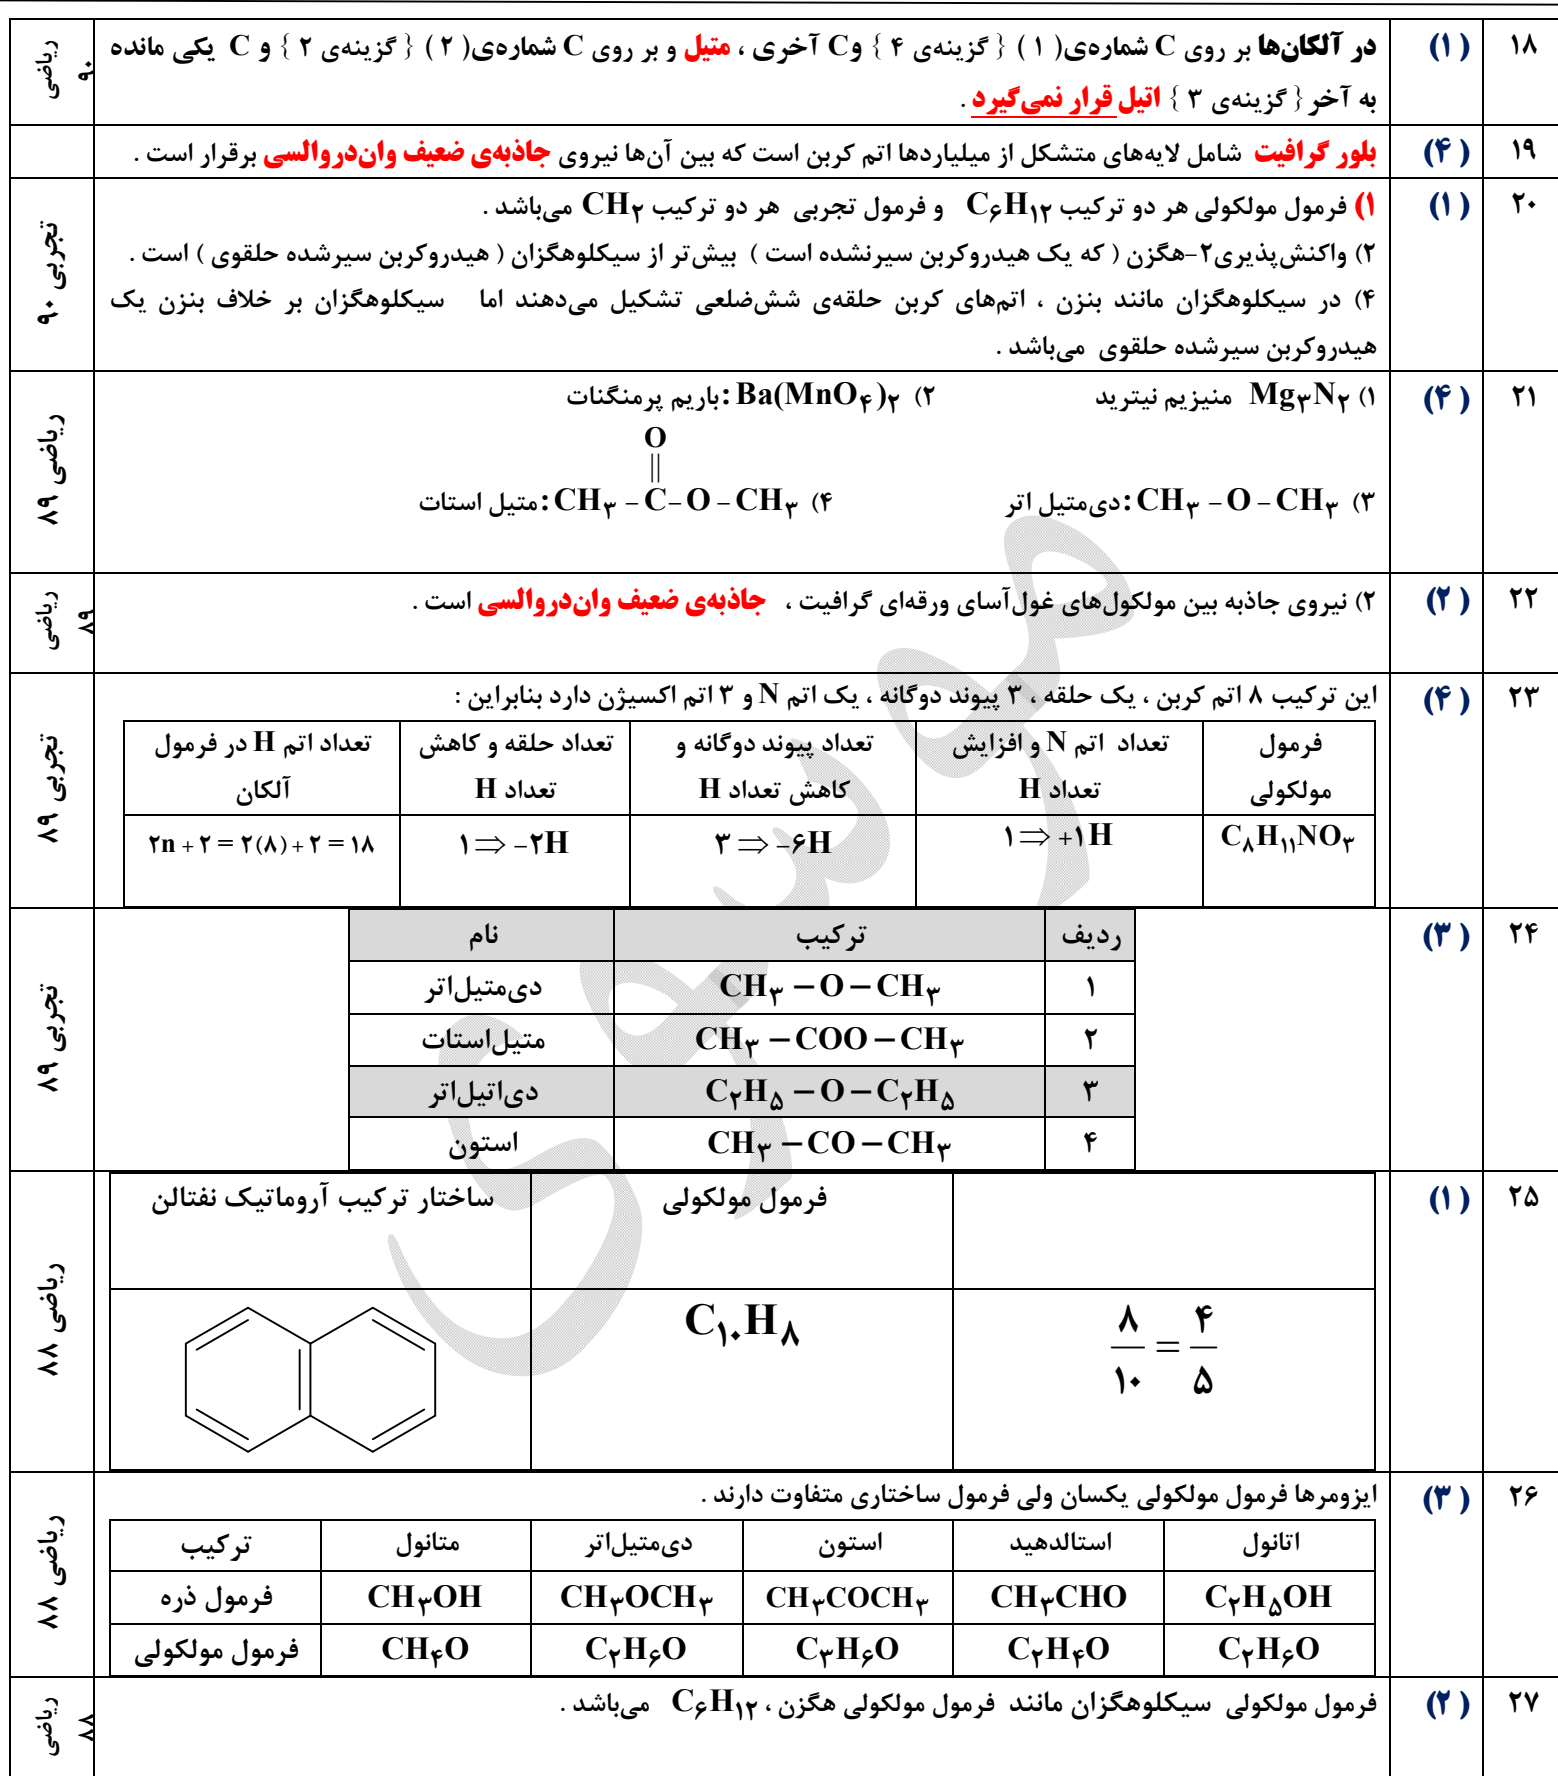 ۱۸ (۱) در آلکان‌ها بر روی C شماره‌ی( ۱ ) { گزینه‌ی ۴ } وC آخری ، متیل و بر روی C شماره‌ی( ۲ ) { گزینه‌ی ۲ } و C یکی مانده
به آخر { گزینه‌ی ۳ } اتیل قرار نمی‌گیرد .
ریاضی ۹۰
۱۹ (۴) بلور گرافیت شامل لایه‌های متشکل از میلیاردها اتم کربن است که بین آن‌ها نیروی جاذبه‌ی ضعیف وان‌دروالسی برقرار است .
۲۰ (۱) ۱) فرمول مولکولی هر دو ترکیب C۶H۱۲ و فرمول تجربی هر دو ترکیب CH۲ می‌باشد .
۲) واکنش‌پذیری۲-هگزن ( که یک هیدروکربن سیرنشده است ) بیش‌تر از سیکلوهگزان ( هیدروکربن سیرشده حلقوی ) است .
۴) در سیکلوهگزان مانند بنزن ، اتم‌های کربن حلقه‌ی شش‌ضلعی تشکیل می‌دهند اما سیکلوهگزان بر خلاف بنزن یک
هیدروکربن سیرشده حلقوی می‌باشد .
تجربی ۹۰
۲۱ (۴) ۱) Mg۳N۲ منیزیم نیترید ۲) Ba(MnO۴)۲ :باریم پرمنگنات
O
||
۳) CH۳ – O – CH۳ :دی‌متیل اتر ۴) CH۳ – C – O – CH۳ :متیل استات
ریاضی ۸۹
۲۲ (۲) ۲) نیروی جاذبه بین مولکول‌های غول‌آسای ورقه‌ای گرافیت ، جاذبه‌ی ضعیف وان‌دروالسی است .
ریاضی ۸۹
۲۳ (۴) این ترکیب ۸ اتم کربن ، یک حلقه ، ۳ پیوند دوگانه ، یک اتم N و ۳ اتم اکسیژن دارد بنابراین :
فرمول مولکولی | تعداد اتم N و افزایش تعداد H | تعداد پیوند دوگانه و کاهش تعداد H | تعداد حلقه و کاهش تعداد H | تعداد اتم H در فرمول آلکان
C۸H۱۱NO۳ | ۱ ⇒ +۱H | ۳ ⇒ –۶H | ۱ ⇒ –۲H | ۲n + ۲ = ۲(۸) + ۲ = ۱۸
تجربی ۸۹
۲۴ (۳) ردیف ترکیب نام
۱ CH۳ – O – CH۳ دی‌متیل‌اتر
۲ CH۳ – COO – CH۳ متیل‌استات
۳ C۲H۵ – O – C۲H۵ دی‌اتیل‌اتر
۴ CH۳ – CO – CH۳ استون
تجربی ۸۹
۲۵ (۱) فرمول مولکولی ساختار ترکیب آروماتیک نفتالن
۸/۱۰ = ۴/۵ C۱۰H۸
ریاضی ۸۸
۲۶ (۳) ایزومرها فرمول مولکولی یکسان ولی فرمول ساختاری متفاوت دارند .
اتانول استالدهید استون دی‌متیل‌اتر متانول ترکیب
C۲H۵OH CH۳CHO CH۳COCH۳ CH۳OCH۳ CH۳OH فرمول ذره
C۲H۶O C۲H۴O C۳H۶O C۲H۶O CH۴O فرمول مولکولی
ریاضی ۸۸
۲۷ (۲) فرمول مولکولی سیکلوهگزان مانند فرمول مولکولی هگزن ، C۶H۱۲ می‌باشد .
ریاضی ۸۷
موسوی